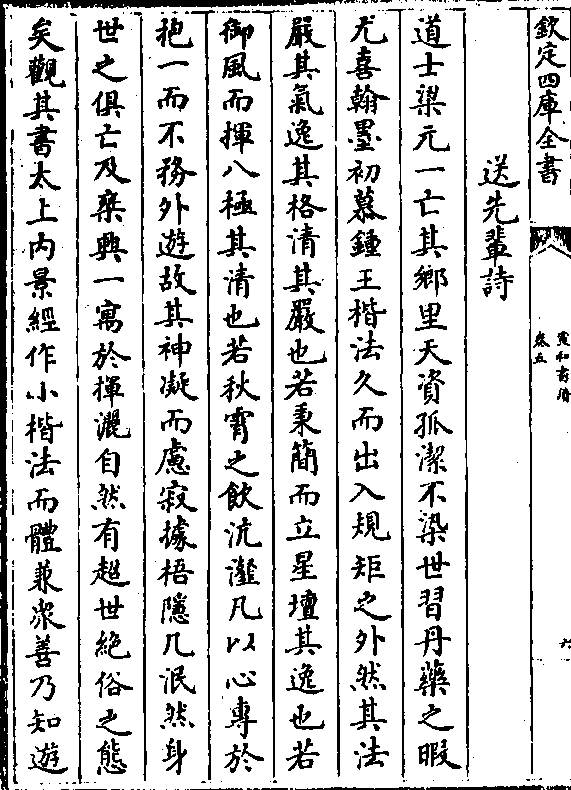 欽定四庫全書
宣和書譜
卷五
六
送先輩詩
道士梁元一亡其鄉里天資孤潔不染世習丹藥之暇
尤喜翰墨初慕鍾王楷法久而出入規矩之外然其法
嚴其氣逸其格清其嚴也若秉簡而立星壇其逸也若
御風而揮八極其清也若秋霄之飲沆瀣凡以心專於
抱一而不務外遊故其神凝而慮寂據梧隱几泯然身
世之俱亡及乗興一寓於揮灑自然有超世絶俗之態
矣觀其書太上内景經作小楷法而體兼衆善乃知遊